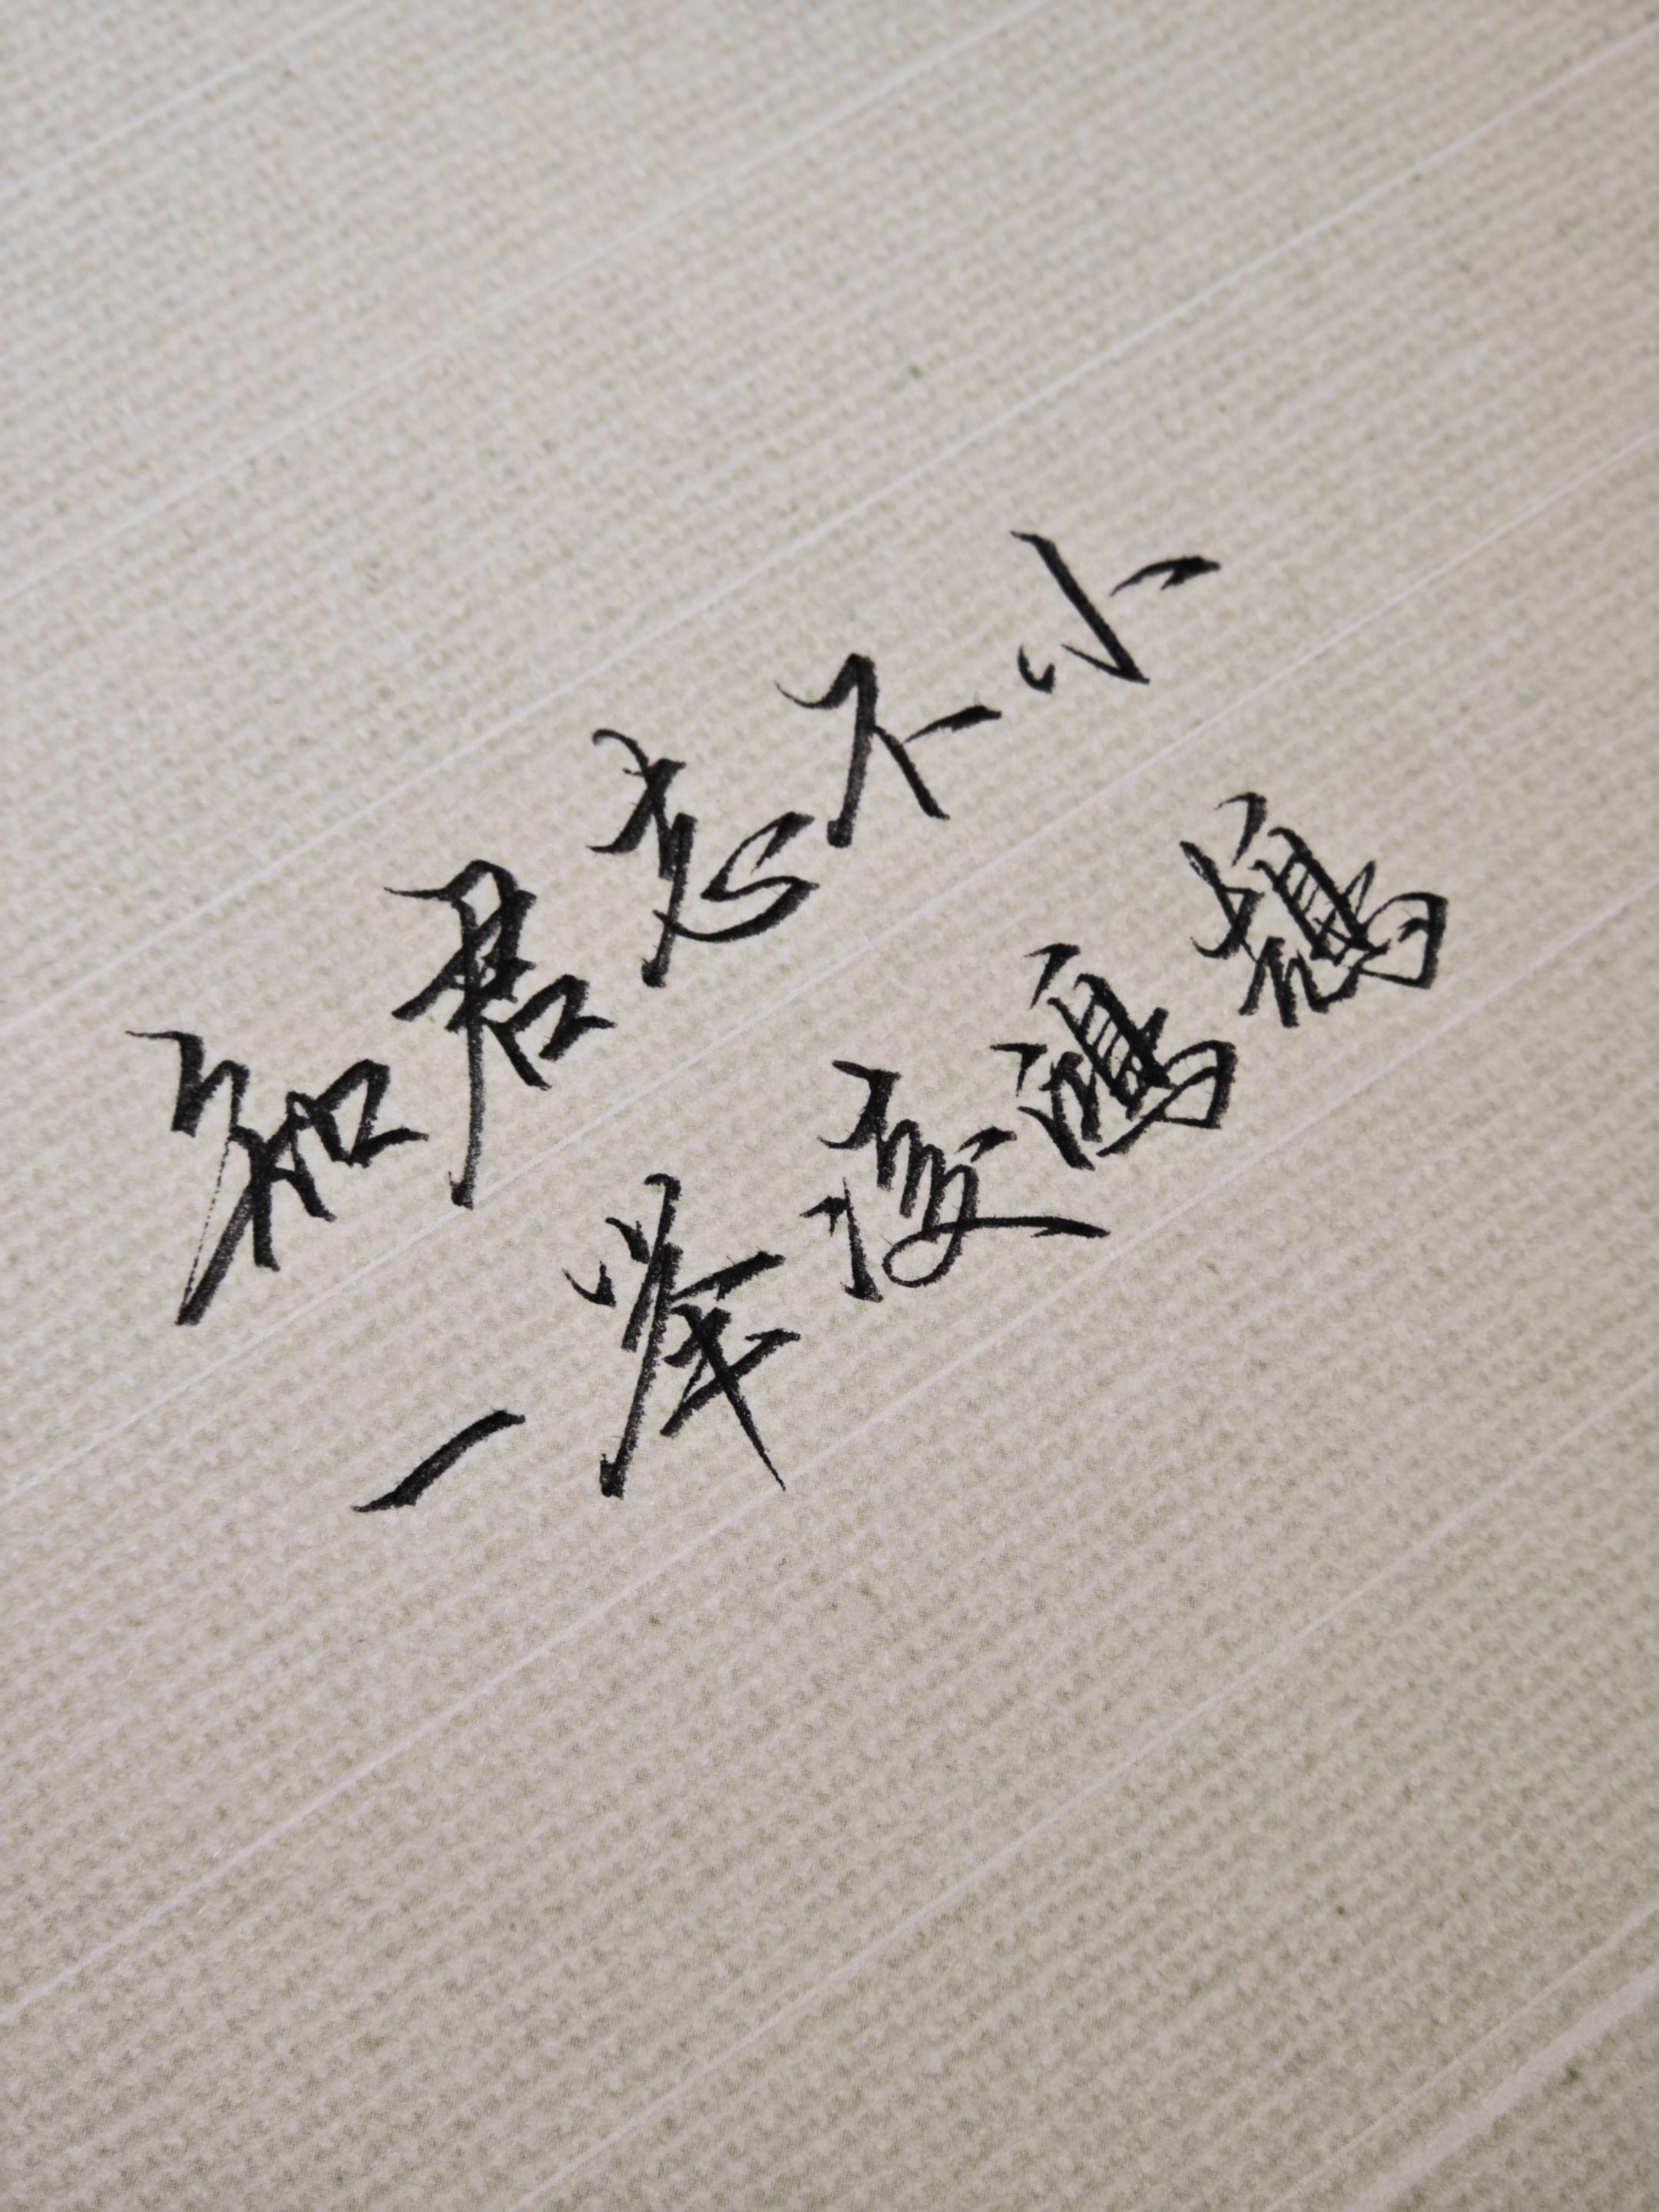 知君志不小
一举凌鴻鵠